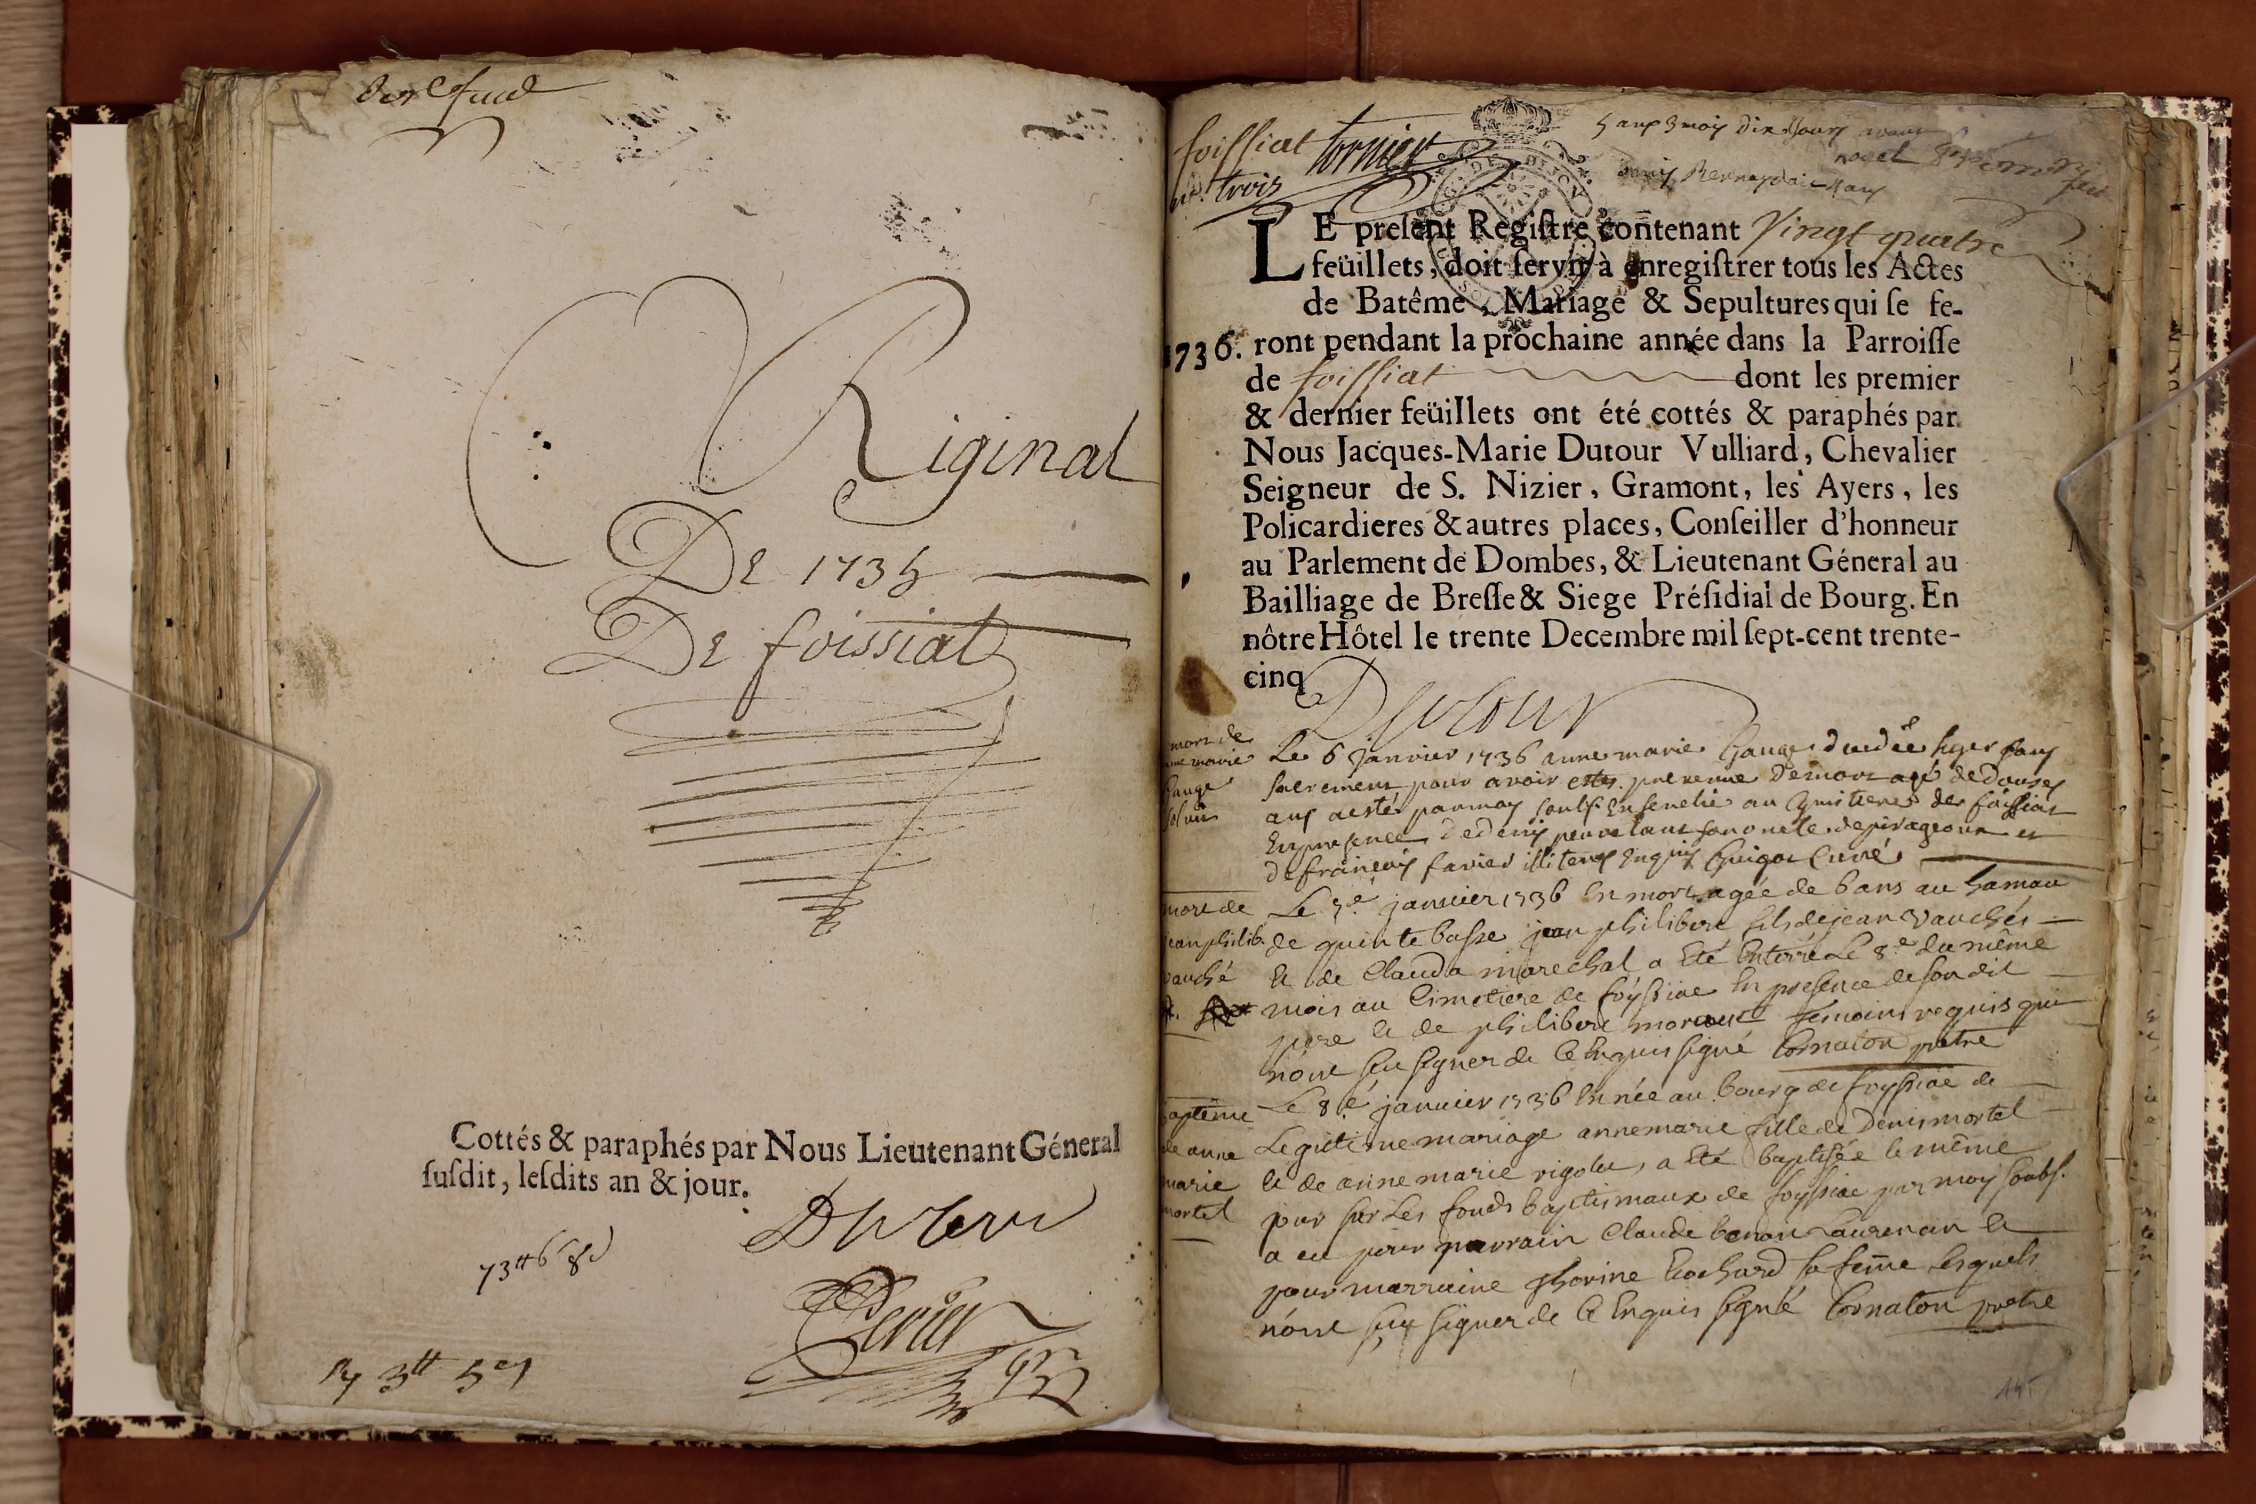 Riginal
De 1735
De foissiat
Cottés & paraphés par Nous Lieutenant Géneral
ſuſdit, leſdits an & jour.
Dutour
Perier
foissiat
trois
5 ans 3 mois dix jours
LE preſent Regiſtre contenant Vingt quatre
feüillets, doit ſervir à enregiſtrer tous les Actes
de Batême, Mariage & Sepultures qui ſe fe-
1736. ront pendant la prochaine année dans la Parroiſſe
de foissiat dont les premier
& dernier feüillets ont été cottés & paraphés par
Nous Jacques-Marie Dutour Vulliard, Chevalier
Seigneur de S. Nizier, Gramont, les Ayers, les
Policardieres & autres places, Conſeiller d'honneur
au Parlement de Dombes, & Lieutenant Géneral au
Bailliage de Breſſe & Siege Préſidial de Bourg. En
nôtre Hôtel le trente Decembre mil ſept-cent trente-
cinq
Dutour
mort de
marie
Le 6 janvier 1736 anne marie
sacrement pour avoir esté prevenue de mort agé de douses
ans a esté par moy soubs. ensevelie au Cymitiere de foissiat
En presence de denis
de françois favier illiterés enquis Guigot Curé
mort de
jean philib.
vauché
Le 7e janvier 1736 en mort agée de 6 ans au hamau
de quinte basse jean philibert fils de jean vauchés
et de Clauda marechal a été enterré Le 8e du même
mois au Cimetiere de foyssiat en presence de son dit
pere et de philibert temoins requis qui
n'ont sçu signer de ce enquis signé Cornaton prêtre
baptême
de anne
marie
mortel
Le 8e janvier 1736 en née au bourg de foyssiat de
Legitime mariage anne marie fille de Denis mortel
et de anne marie rigolet, a été baptisée le même
jour sur Les fonds baptismaux de foyssiat par moy soubs.
a eu pour parrain Claude et
pour marraine sa femme lesquels
n'ont sçu signer de ce enquis signé Cornaton prêtre